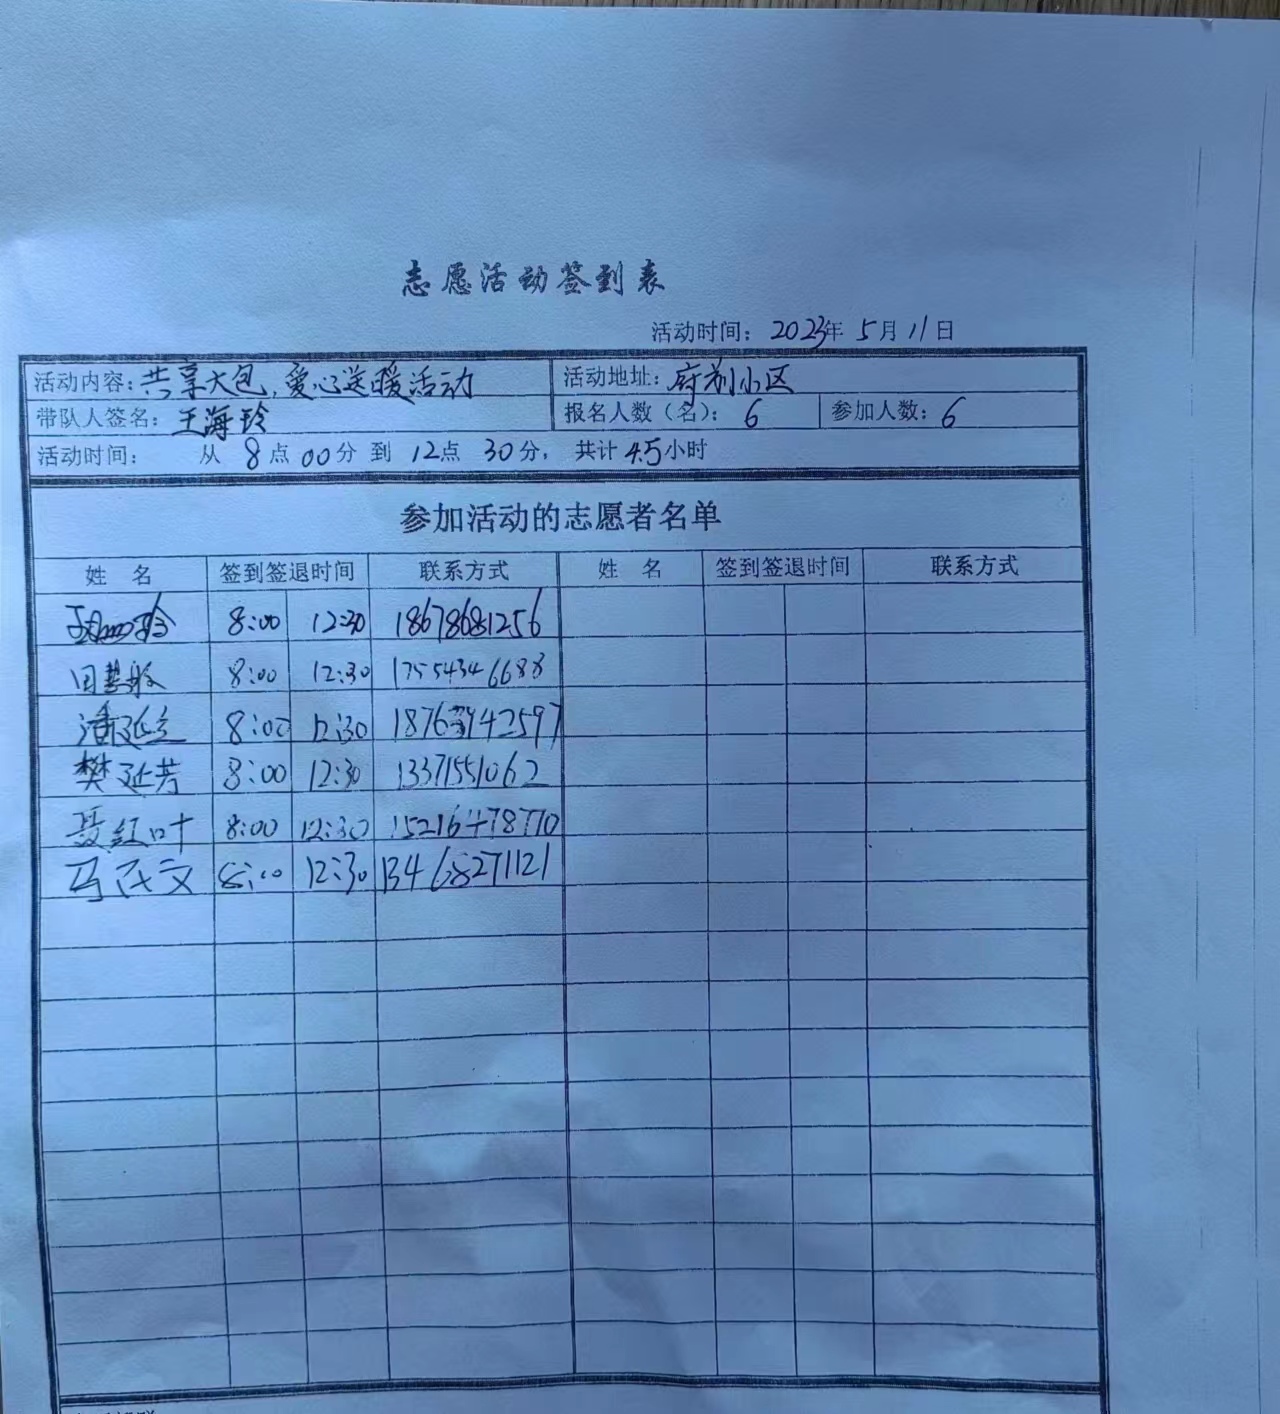 志愿活动签到表
活动时间： 2023年 5月 11日
活动内容：共享大包，爱心送暖活动 活动地址：府前小区
带队人签名：王海玲 报名人数（名）： 6 参加人数：6
活动时间： 从 8点 00分 到 12点 30分， 共计 4.5小时
参加活动的志愿者名单
姓 名 签到签退时间 联系方式 姓 名 签到签退时间 联系方式
8:00 12:30 18678681256
田 8:00 12:30 17554346688
潘延兰 8:00 12:30 1876 942597
樊延芳 8:00 12:30 13371551062
聂红叶 8:00 12:30 15216478710
马民文 8:00 12:30 13468271121